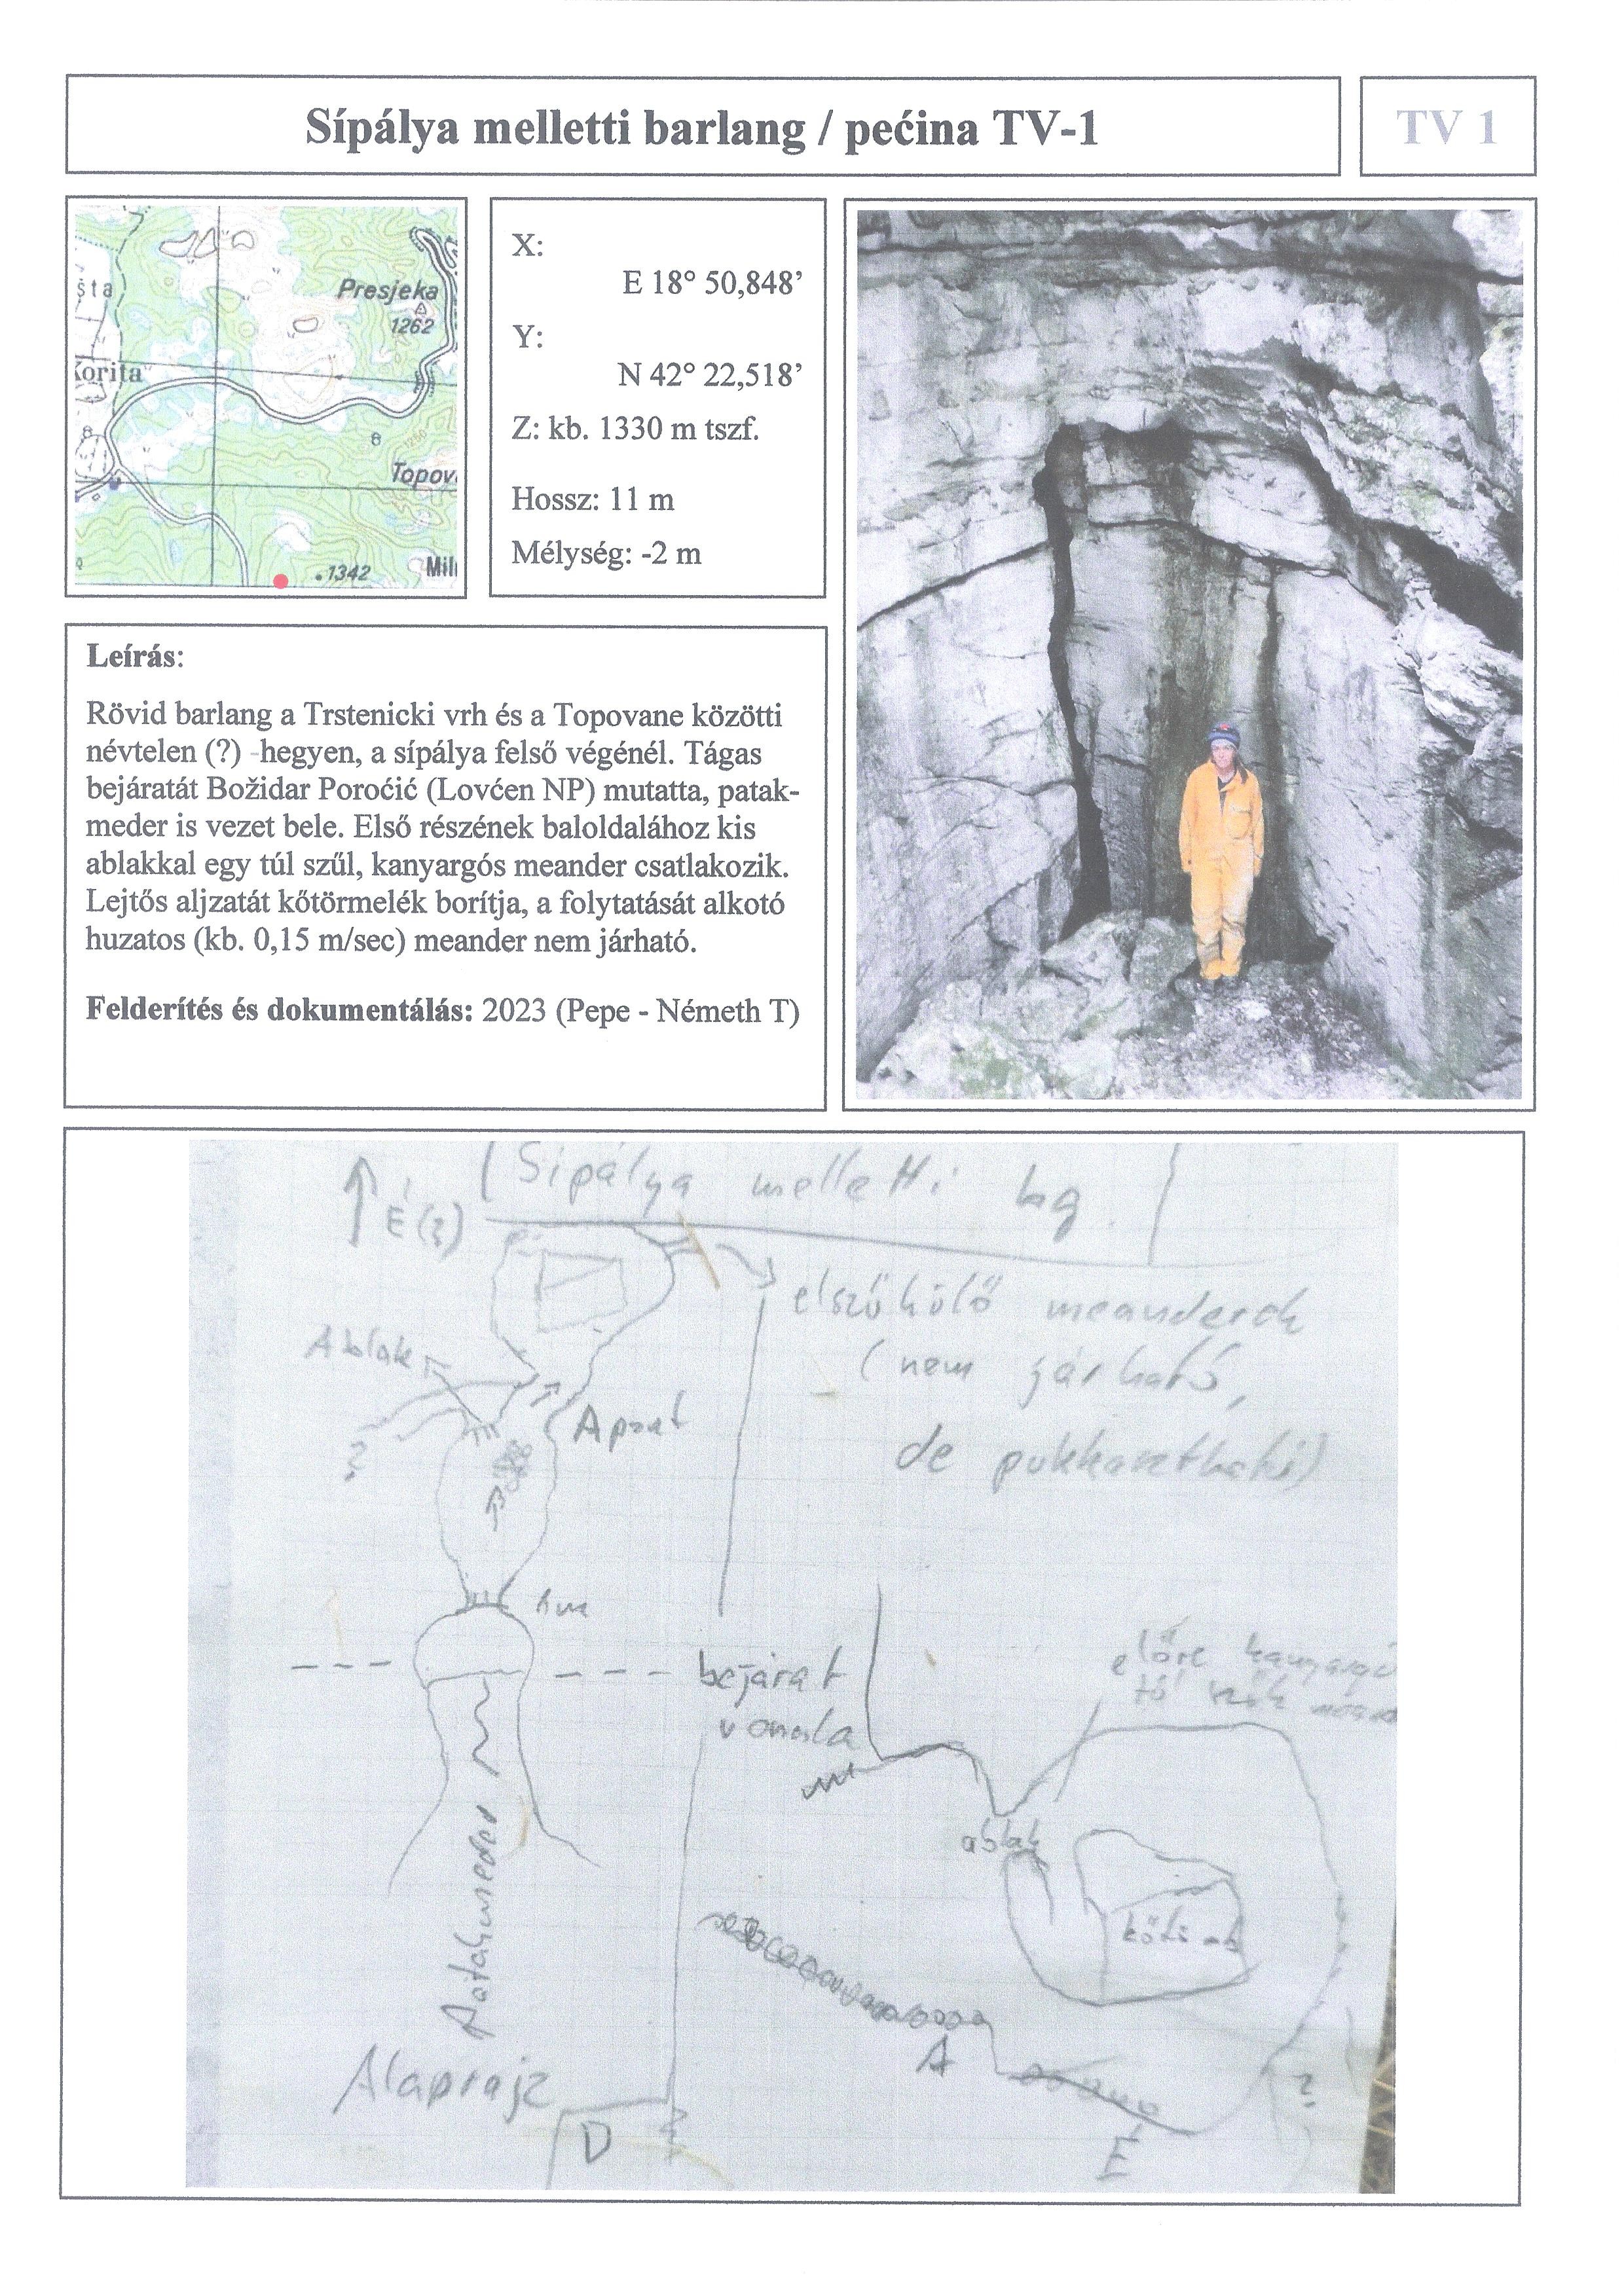 Sípálya melletti barlang / pećina TV-1
TV 1
šta
Presjeka
1262
Korita
8
8
1250
Topov
1342
Mil
X:
E 18° 50,848’
Y:
N 42° 22,518’
Z: kb. 1330 m tszf.
Hossz: 11 m
Mélység: -2 m
Leírás:
Rövid barlang a Trstenicki vrh és a Topovane közötti
névtelen (?) -hegyen, a sípálya felső végénél. Tágas
bejáratát Božidar Poroćić (Lovćen NP) mutatta, patak-
meder is vezet bele. Első részének baloldalához kis
ablakkal egy túl szűl, kanyargós meander csatlakozik.
Lejtős aljzatát kőtörmelék borítja, a folytatását alkotó
huzatos (kb. 0,15 m/sec) meander nem járható.
Felderítés és dokumentálás: 2023 (Pepe - Németh T)
Sípálya melletti bg.
É (?)
elszűkülő meanderek
(nem járható,
de
Ablak
?
bejárat
vonala
előre
ablak
Patakmeder
A
Alaprajz
D
É
?